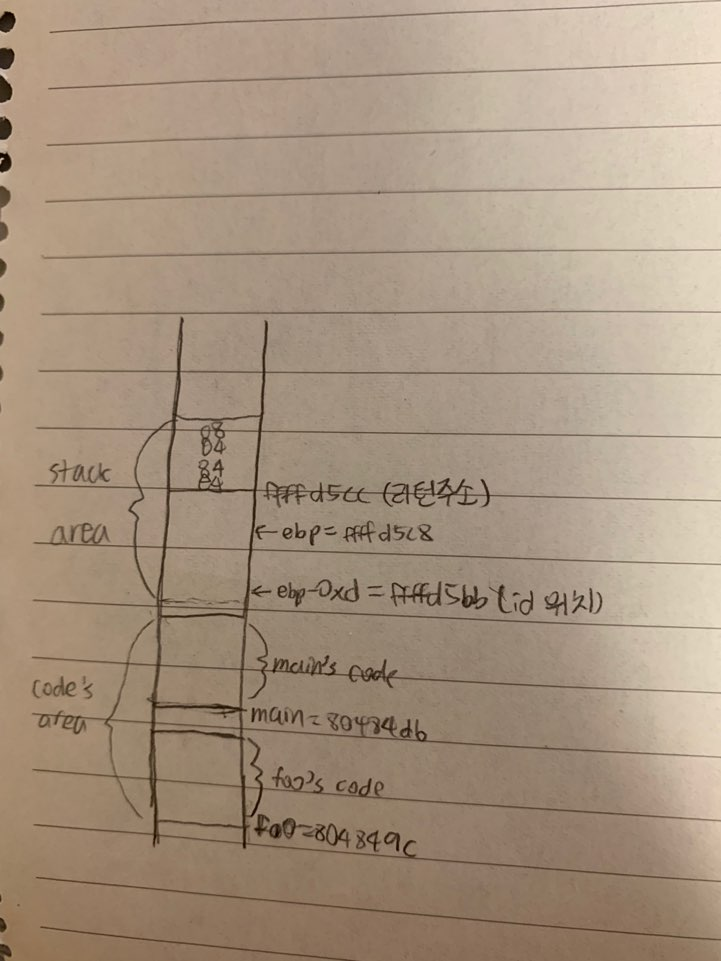 08
04
84
84
stack
area
ffffd5cc (리턴주소)
←ebp=ffffd5c8
←ebp-0xd = ffffd5bb (id 위치)
main's code
code's
area
main=80484db
foo's code
foo=804849c